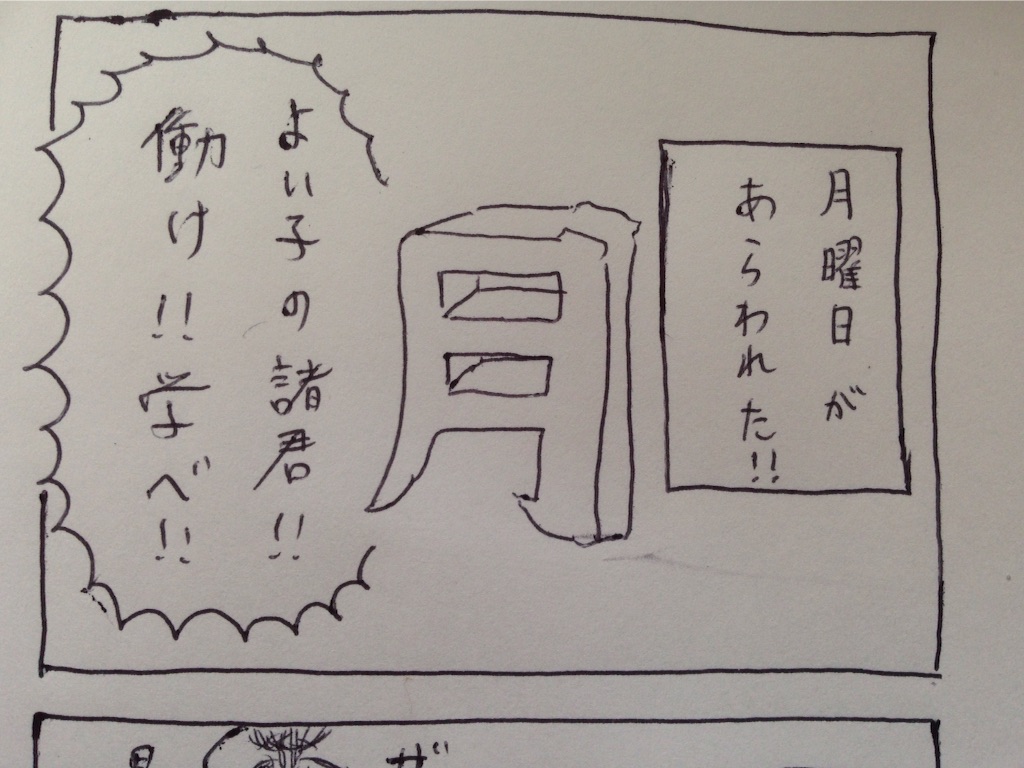 月曜日が
あらわれた!!
月
よい子の諸君!!
働け!!学べ!!
ぜ